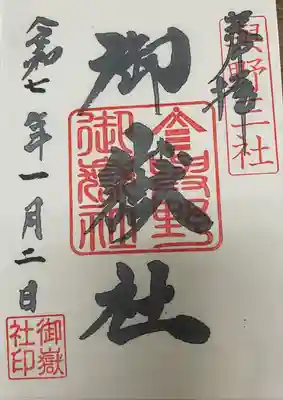 奉拝
御嶽社
御嶽社
令和七年一月二日
御嶽
社印